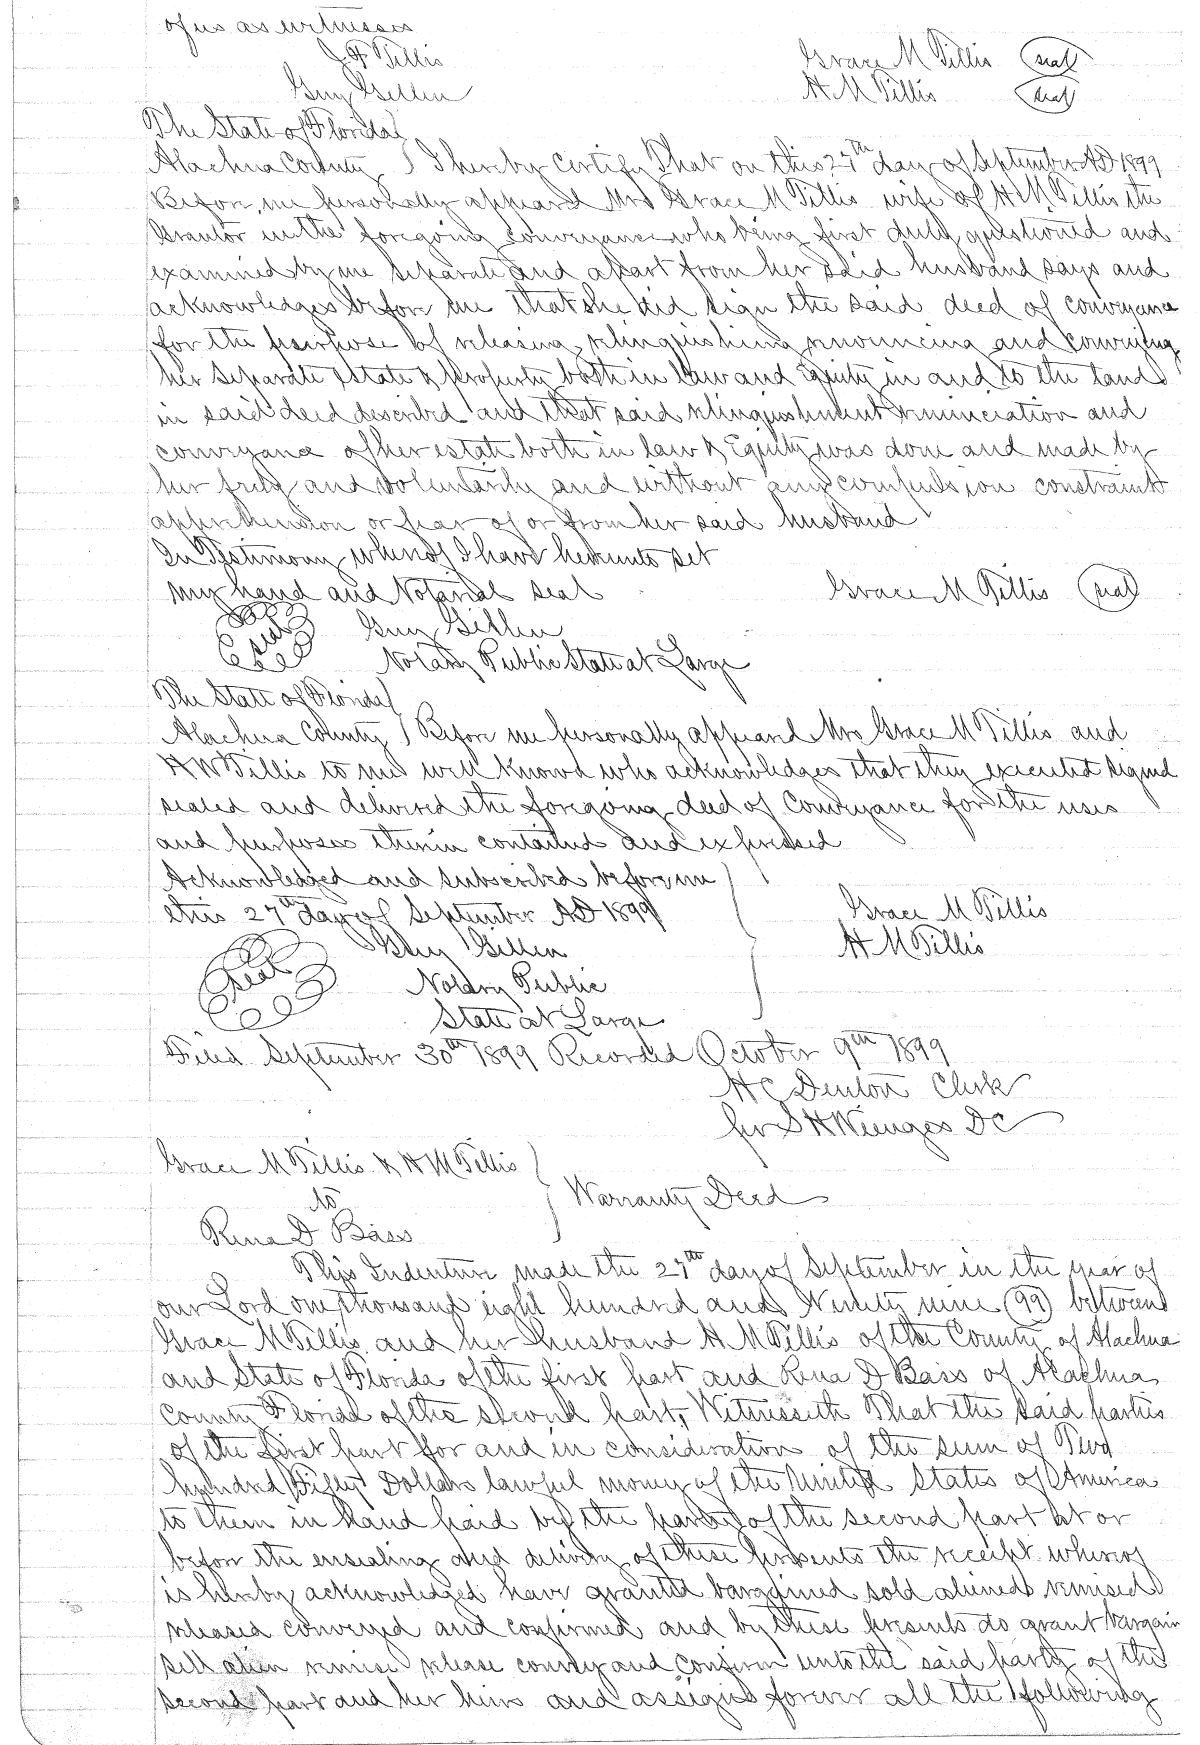 of us as witnesses
J F Tillis Grace M Tillis (seal)
Guy Gillen H M Tillis (seal)
The State of Florida
Alachua County I hereby certify That on this 27th day of September AD 1899
Before me personally appeared Mrs Grace M Tillis wife of H M Tillis the
Grantor in the foregoing conveyance who being first duly questioned and
examined by me separate and apart from her said husband says and
acknowledges before me that she did sign the said deed of conveyance
for the purpose of releasing, relinquishing renouncing and conveying
her separate estate & property both in law and Equity in and to the lands
in said deed described and that said relinquishment renunciation and
conveyance of her estate both in law & Equity was done and made by
her freely and voluntarily and without any compulsion constraint
apprehension or fear of or from her said husband
In Testimony whereof I have hereunto set
my hand and Notarial seal Grace M Tillis (seal)
seal Guy Gillen
Notary Public State at Large
The State of Florida
Alachua County Before me personally appeared Mrs Grace M Tillis and
H M Tillis to me well known who acknowledges that they executed signed
sealed and delivered the foregoing deed of conveyance for the uses
and purposes therein contained and expressed
Acknowledged and subscribed before me
this 27th day of September AD 1899 Grace M Tillis
Guy Gillen H M Tillis
seal Notary Public
State at Large
Filed September 30th 1899 Recorded October 9th 1899
H C Denton Clerk
per S H Wienges DC
Grace M Tillis & H M Tillis
to Warranty Deed
Rena D Bass
This Indenture made the 27th day of September in the year of
our Lord one thousand eight hundred and Ninety nine (99) between
Grace M Tillis and her husband H M Tillis of the County of Alachua
and State of Florida of the first part and Rena D Bass of Alachua
County Florida of the second part, Witnesseth That the said parties
of the first part for and in consideration of the sum of Two
hundred Fifty Dollars lawful money of the United States of America
to them in hand paid by the party of the second part at or
before the ensealing and delivery of these presents the receipt whereof
is hereby acknowledged have granted bargained sold aliened remised
released conveyed and confirmed and by these presents do grant bargain
sell alien remise release convey and confirm unto the said party of the
second part and her heirs and assigns forever all the following